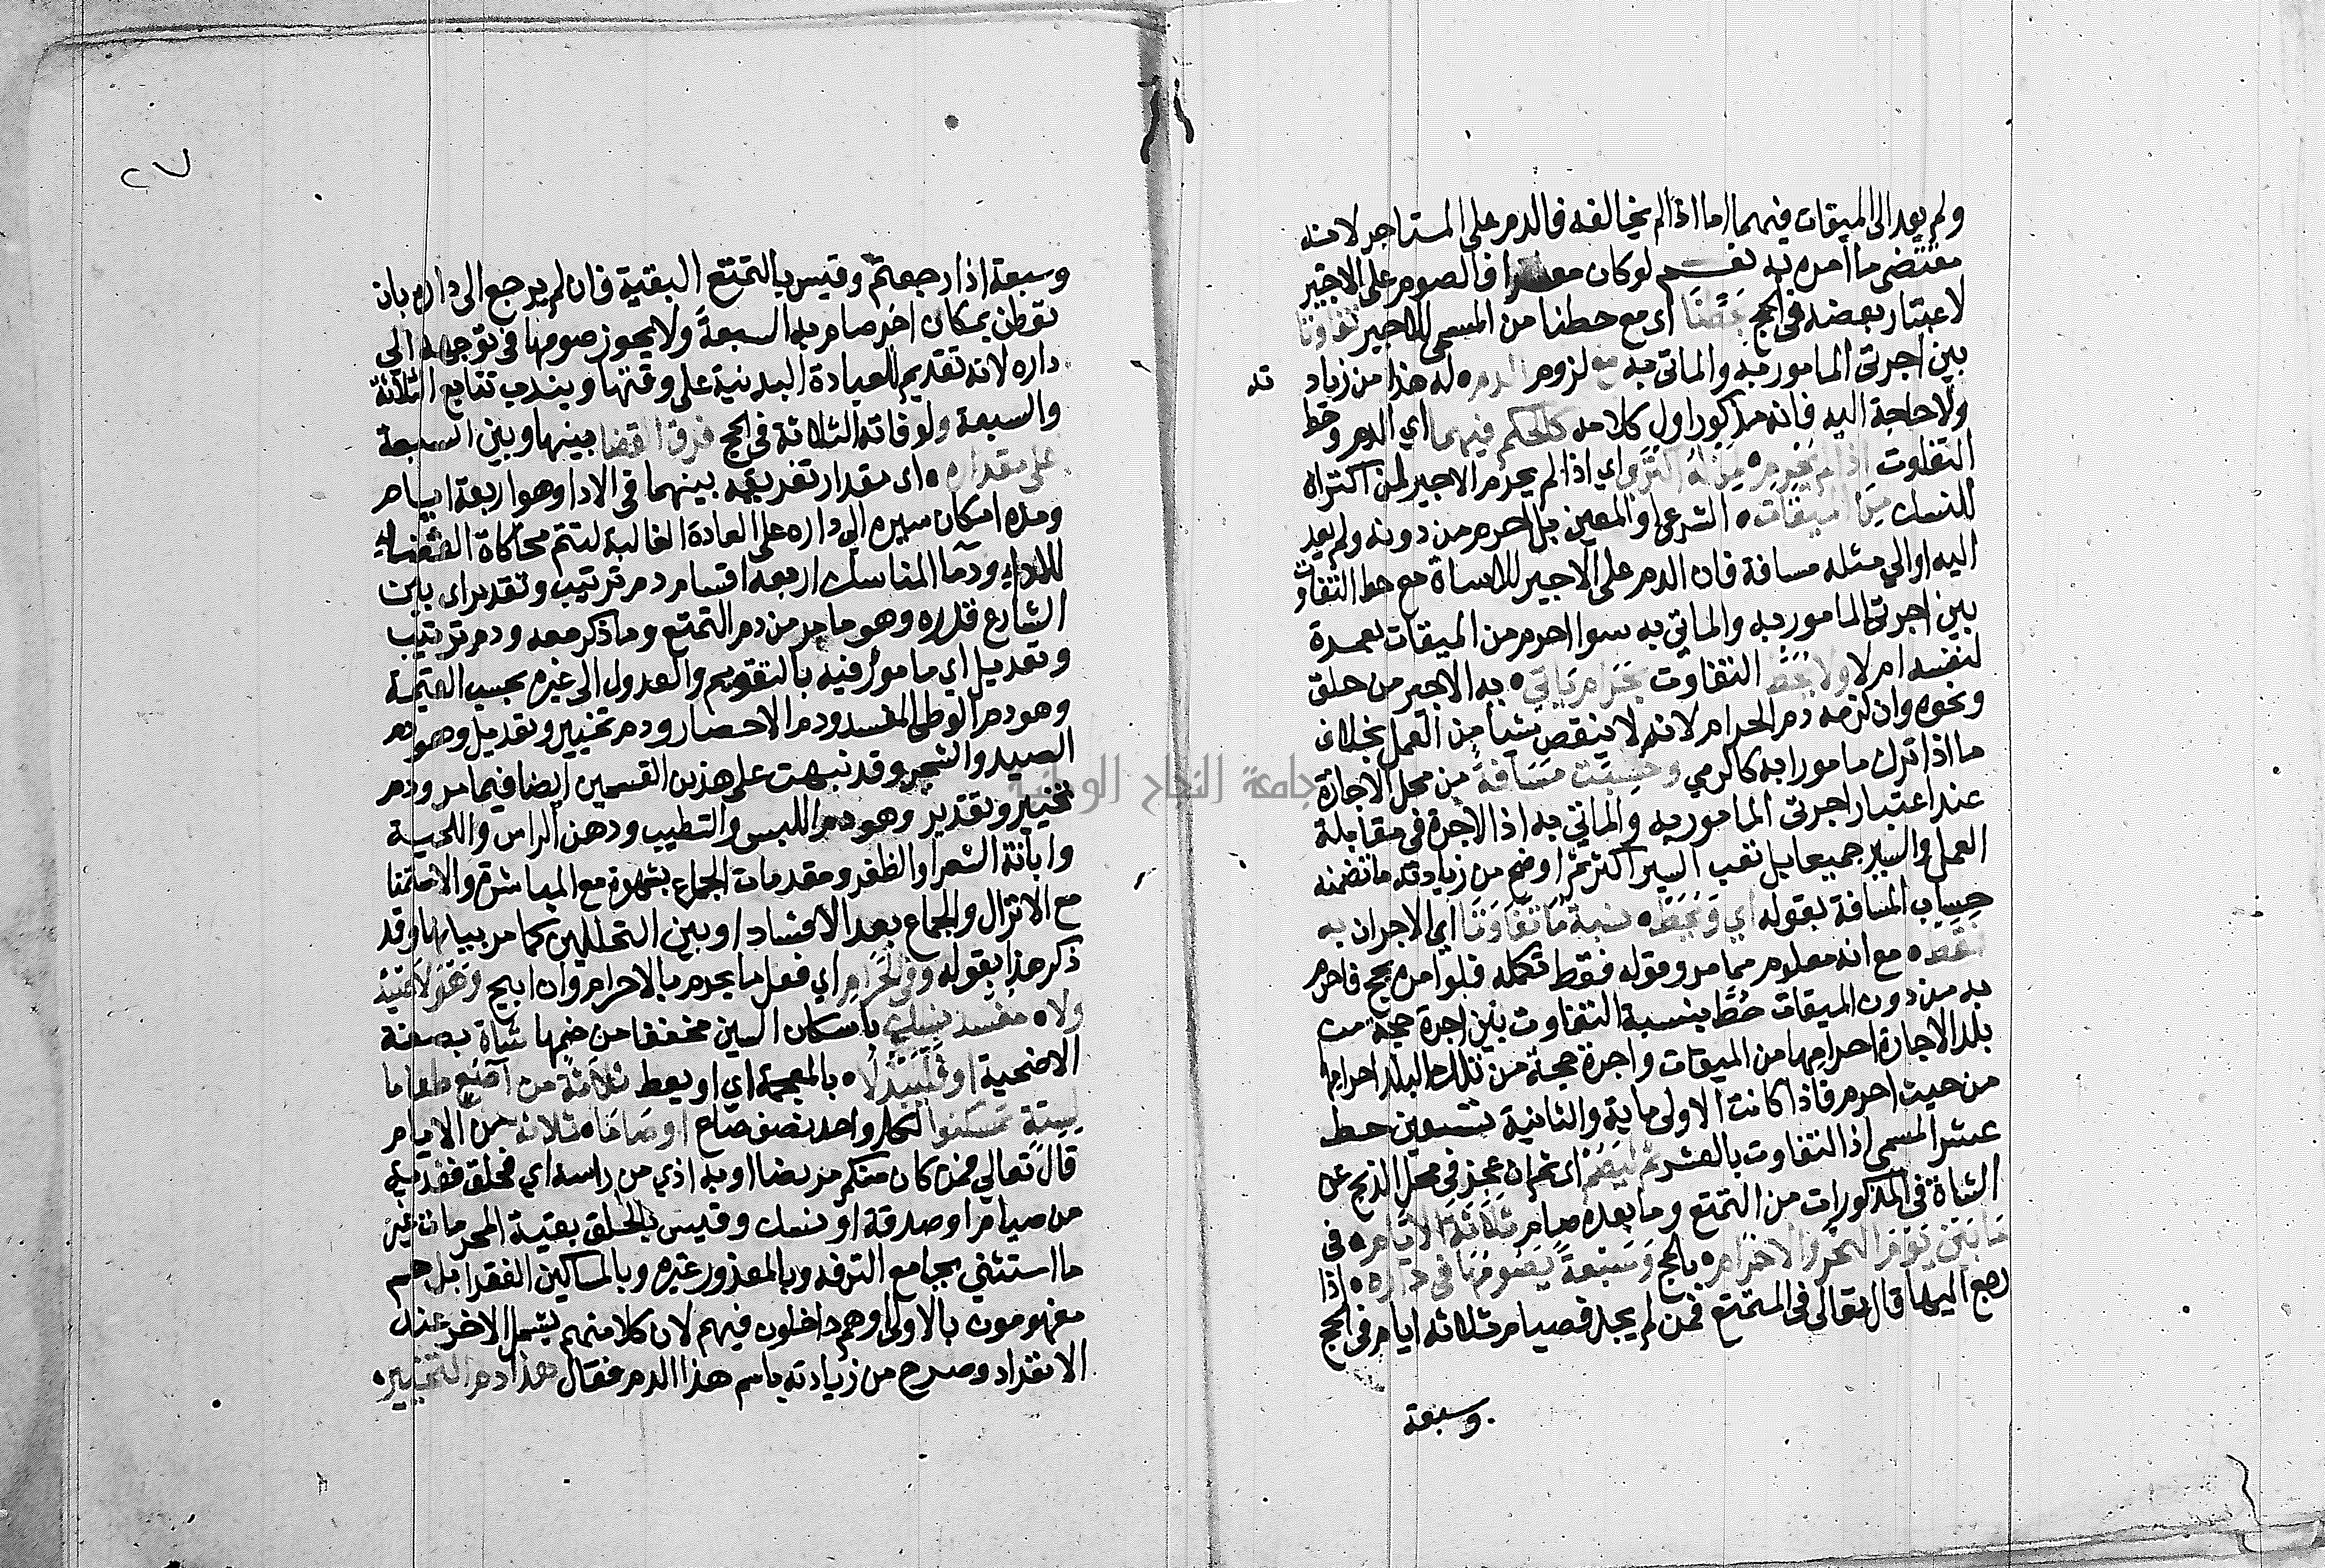 ولم يعد الى الميقات فيهما اما اذا لم يخالفه فالدم على المستاجر لانه
مقتضى ما امره به نعم لو كان معسرا فالصوم على الاجير
لاعتبار بعضه في الحج بحطنا اى مع حطنا من المسمى للاجير تفاوتا
بين اجرتى المامور به والماتى به مع لزوم الدم له هذا من زياد ته
ولا حاجة اليه فانه مذكور اول كلامه كالحكم فيهما اي الدم وحط
التفاوت اذ لم يحرم من له اكترى اي اذا لم يحرم الاجير لمن اكتراه
للنسك من الميقات الشرعى او المعين بل احرم من دونه ولم يعد
اليه او الي مثله مسافة فان الدم على الاجير للاساة مع حط التفاوت
بين اجرتى المامور به والماتي به سوا احرم من الميقات بعمرة
لنفسه ام لا ولا يحط التفاوت بحرام ياتى به الاجير من حلق
ونحوه وان لزمه دم الحرام لانه لا ينقص شيا من العمل بخلاف
ما اذا ترك مامورا به كالرمي وحسبت مسافة من محل الاجازة
عند اعتبار اجرتى المامور به والماتي به اذ الاجرة في مقابلة
العمل والسير جميعا بل تعب السير اكثر ثم اوضح من زيادته ما تضمنه
حساب المسافة بقوله اي ويحط نسبة ما تفاوتا اي الاجران به
فقط مع انه معلوم مما مر وقوله فقط تكمله فلو امره بحج فاحرم
به من دون الميقات حط بنسبة التفاوت بين اجرة حجة من
بلد الاجارة احرامها من الميقات واجرة حجة من تلك البلد احرامها
من حيث احرم فاذا كانت الاولى ماية والثانية تسعين حط
عشر المسمى اذ التفاوت بالعشر ثم ليصم اى ثم ان عجز في محل الذبح عن
الشاة في المذكورات من التمتع وما بعده صام ثلاثة الايام في
ما بين يوم النحر والاحرام بالحج وسبعة يصومها في داره اذا
رجع اليها قال تعالى فى المتمتع فمن لم يجد فصيام ثلاثة ايام في الحج
وسبعة
٢٧
وسبعة اذا رجعتم وقيس بالتمتع البقية فان لم يرجع الى داره بان
توطن بمكان اخر صام به السبعة ولا يجوز صومها في توجهه الي
داره لانه تقديم للعبادة البدنية على وقتها ويندب تتابع الثلاثة
والسبعة ولو فاته الثلاثة في الحج فرق القضا بينها وبين السبعة
على مقداره اى مقدار تفريقه بينهما في الادا وهو اربعة ايام
ومدة امكان سيره الى داره على العادة الغالبة لتتم محاكاة القضاء
للاداء ودما المناسك اربعة اقسام دم ترتيب وتقدير اى بين
الشارع قدره وهو ما مر من دم التمتع وما ذكر معه ودم ترتيب
وتعديل اي مامور فيه بالتقويم والعدول الى غيره بحسب القيمة
وهو دم الوطى المفسد ودم الاحصار ودم تخيير وتعديل وهو دم
الصيد والشجر وقد نبهت على هذين القسمين ايضا فيما مر ودم
تخيير وتقدير وهو دم اللبس والتطييب ودهن الراس واللحية
وابانة الشعر او الظفر ومقدمات الجماع بشهوة مع المباشرة والاستمنا
مع الانزال والجماع بعد الافساد او بين التحللين كما مر بيانها وقد
ذكر هذا بقوله وفى الحرام اي فعل ما يحرم بالاحرام وان ابيح وهو لا صيد
ولا مفسد نسك باسكان السين مخففا من ضمها شاة بصفة
الاضحية او فليبذلا بالمعجمة اي او يعط ثلاثة من آصع طعاما
لستة تمسكنوا لكل واحد نصف صاع او صاما ثلاثة من الايام
قال تعالي فمن كان منكم مريضا او به اذي من راسه اي فحلق ففدية
من صيام او صدقة او نسك وقيس بالحلق بقية المحرمات غير
ما استثني بجامع الترفه وبالمعذور غيره وبالمساكين الفقرا بل هم
مفهومون بالاولى او هم داخلون فيهم لان كلا منهم يشمل الاخر عند
الانفراد وصرح من زيادته باسم هذا الدم فقال هذا دم التخيير
جامعة النجاح الوطنية